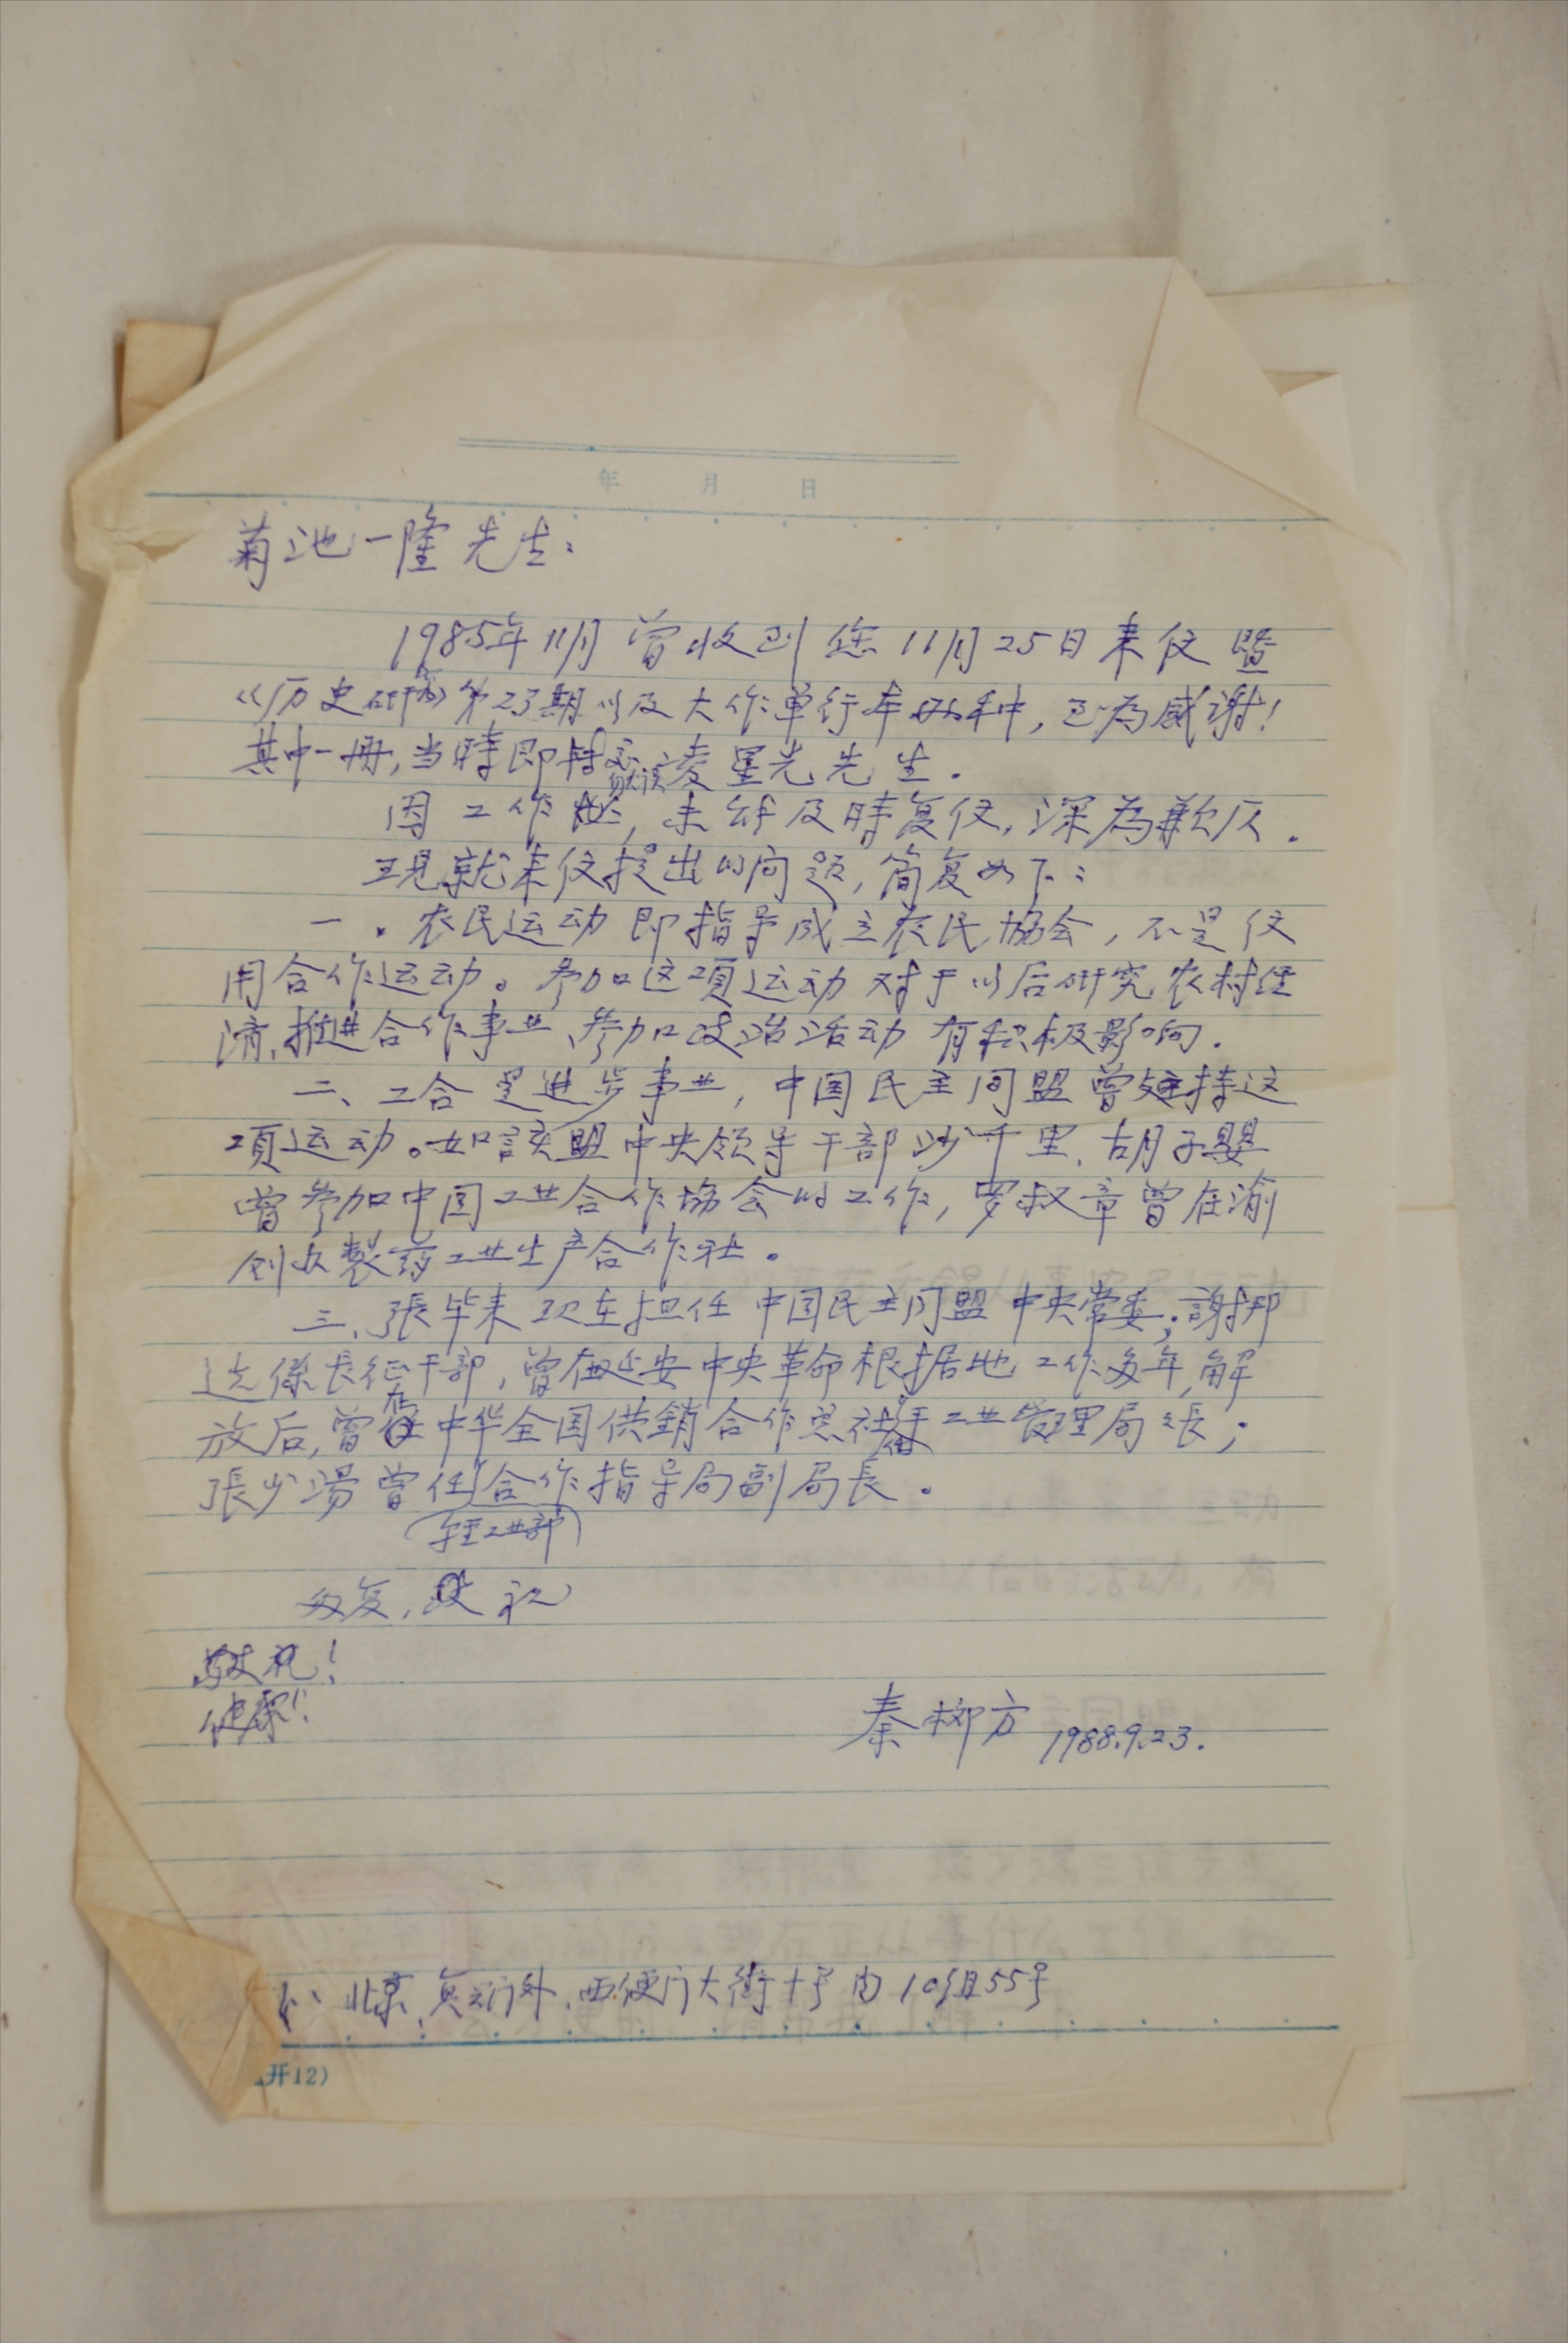 年 月 日
菊池一隆先生：
1985年11月曾收到您11月25日来仪暨
《历史研究》第23期以及大作单行本两种，至为感谢！
其中一册，当時即转交凌星光先生。
因工作忙，未能及時复仪，深為歉仄。
现就来仪提出的问题，简复如下：
一．农民运动即指导成立农民協会，不是仪
用合作运动。参加这项运动对于以后研究农村经
济、推进合作事业、参加政治活动有积极影响．
二、工合是进步事业，中国民主同盟曾支持这
项运动。如該盟中央领导干部沙千里、胡子嬰
曾参加中国工业合作協会的工作，罗叔章曾在渝
创办製药工业生产合作社。
三、張毕来现在担任中国民主同盟中央常委；謝邦
选係长征干部，曾在延安中央革命根据地工作多年，解
放后，曾在中华全国供銷合作总社任手工业管理局长；
張少湯曾任合作指导局副局長。
（轻工业部）
匆复，祝
敬祝！
健康！
秦柳方 1988.9.23.
北京、复兴门外、西便门大街十号内10组55号
开12)